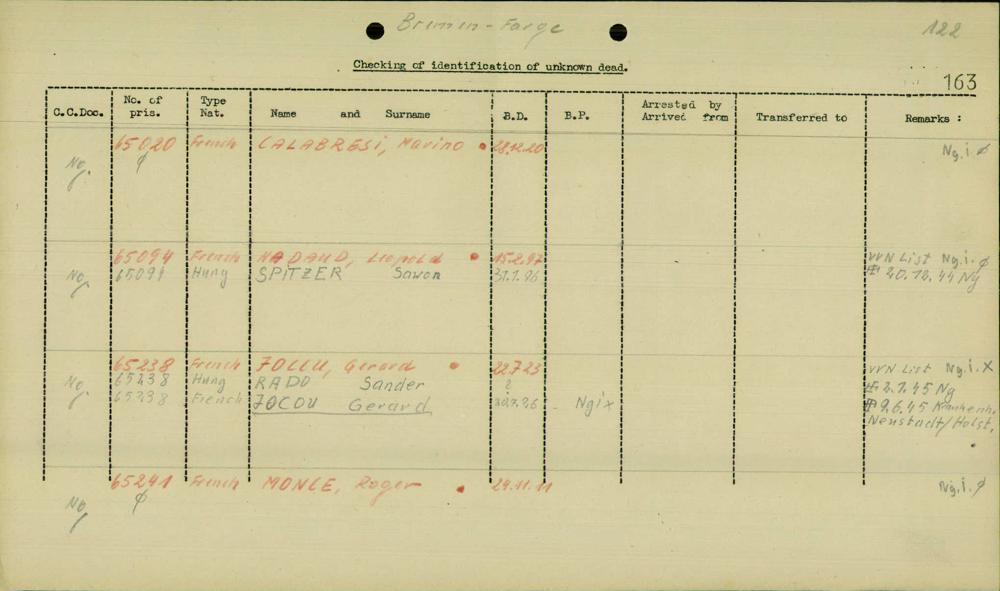 Bremen-Farge
122
Checking of identification of unknown dead.
163
C.C.Doc. No. of pris. Type Nat. Name and Surname B.D. B.P. Arrested by Arrived from Transferred to Remarks :
65020 French CALABRESI, Marino 28.12.20 Ng.i. ϕ
No. ϕ
65094 French NADAUD, Leopold 15.2.97 VVN List Ng.i. ϕ
No. 65094 Hung SPITZER Sawon 31.1.26 20.12.44 Ng
65238 French JOCLU, Gerard 22.7.23 VVN List Ng.i. X
No. 65238 Hung RADO Sander ? 2.1.45 Ng
65238 French JOCOU Gerard 22.7.26 Ngix 9.6.45 Krankenh.
Neustadt/Holst.
65241 French MONCE, Roger 29.11.11 Ng.i. ϕ
No. ϕ